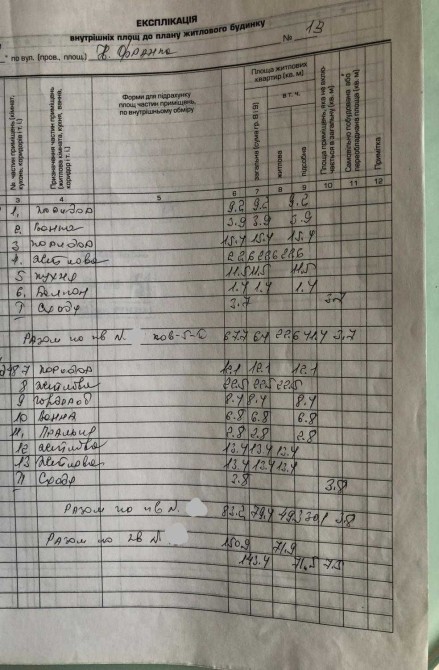 ЕКСПЛІКАЦІЯ
внутрішніх площ до плану житлового будинку
" по вул. (пров., площ.) Ів. Франка № 13
№ частин приміщень (кімнат, кухонь, коридорів і т. і.)
Призначення частин приміщень (житлова кімната, кухня, ванна, коридор і т. і.)
Форми для підрахунку площ частин приміщень, по внутрішньому обміру
Площа житлових квартир (кв. м)
загальна (сума гр. 8 і 9)
в т. ч.
житлова
підсобна
Площа приміщень, яка не включається в загальну (кв. м)
Самовільно побудована або переобладнана площа (кв. м)
Примітка
3 4 5 6 7 8 9 10 11 12
1. коридор 9.2 9.2 9.2
2. Ванна 3.9 3.9 3.9
3 коридор 15.4 15.4 15.4
4. житлова 22.6 22.6 22.6
5 кухня 11.5 11.5 11.5
6. Балкон 1.4 1.4 1.4
І Сходи 3.7 3.7
Разом по кв N. 67.7 64 22.6 41.4 3.7
7 коридор 12.1 12.1 12.1
8 житлова 22.5 22.5 22.5
9 гардероб 8.4 8.4 8.4
10 ванна 6.8 6.8 6.8
11. Пральня 2.8 2.8 2.8
12 житлова 13.4 13.4 13.4
13 житлова 13.4 13.4 13.4
ІІ Сходи 3.8 3.8
Разом по кв N. 83.2 79.4 49.3 30.1 3.8
Разом по 2кв N 150.9 71.9
143.4 71.5 7.5